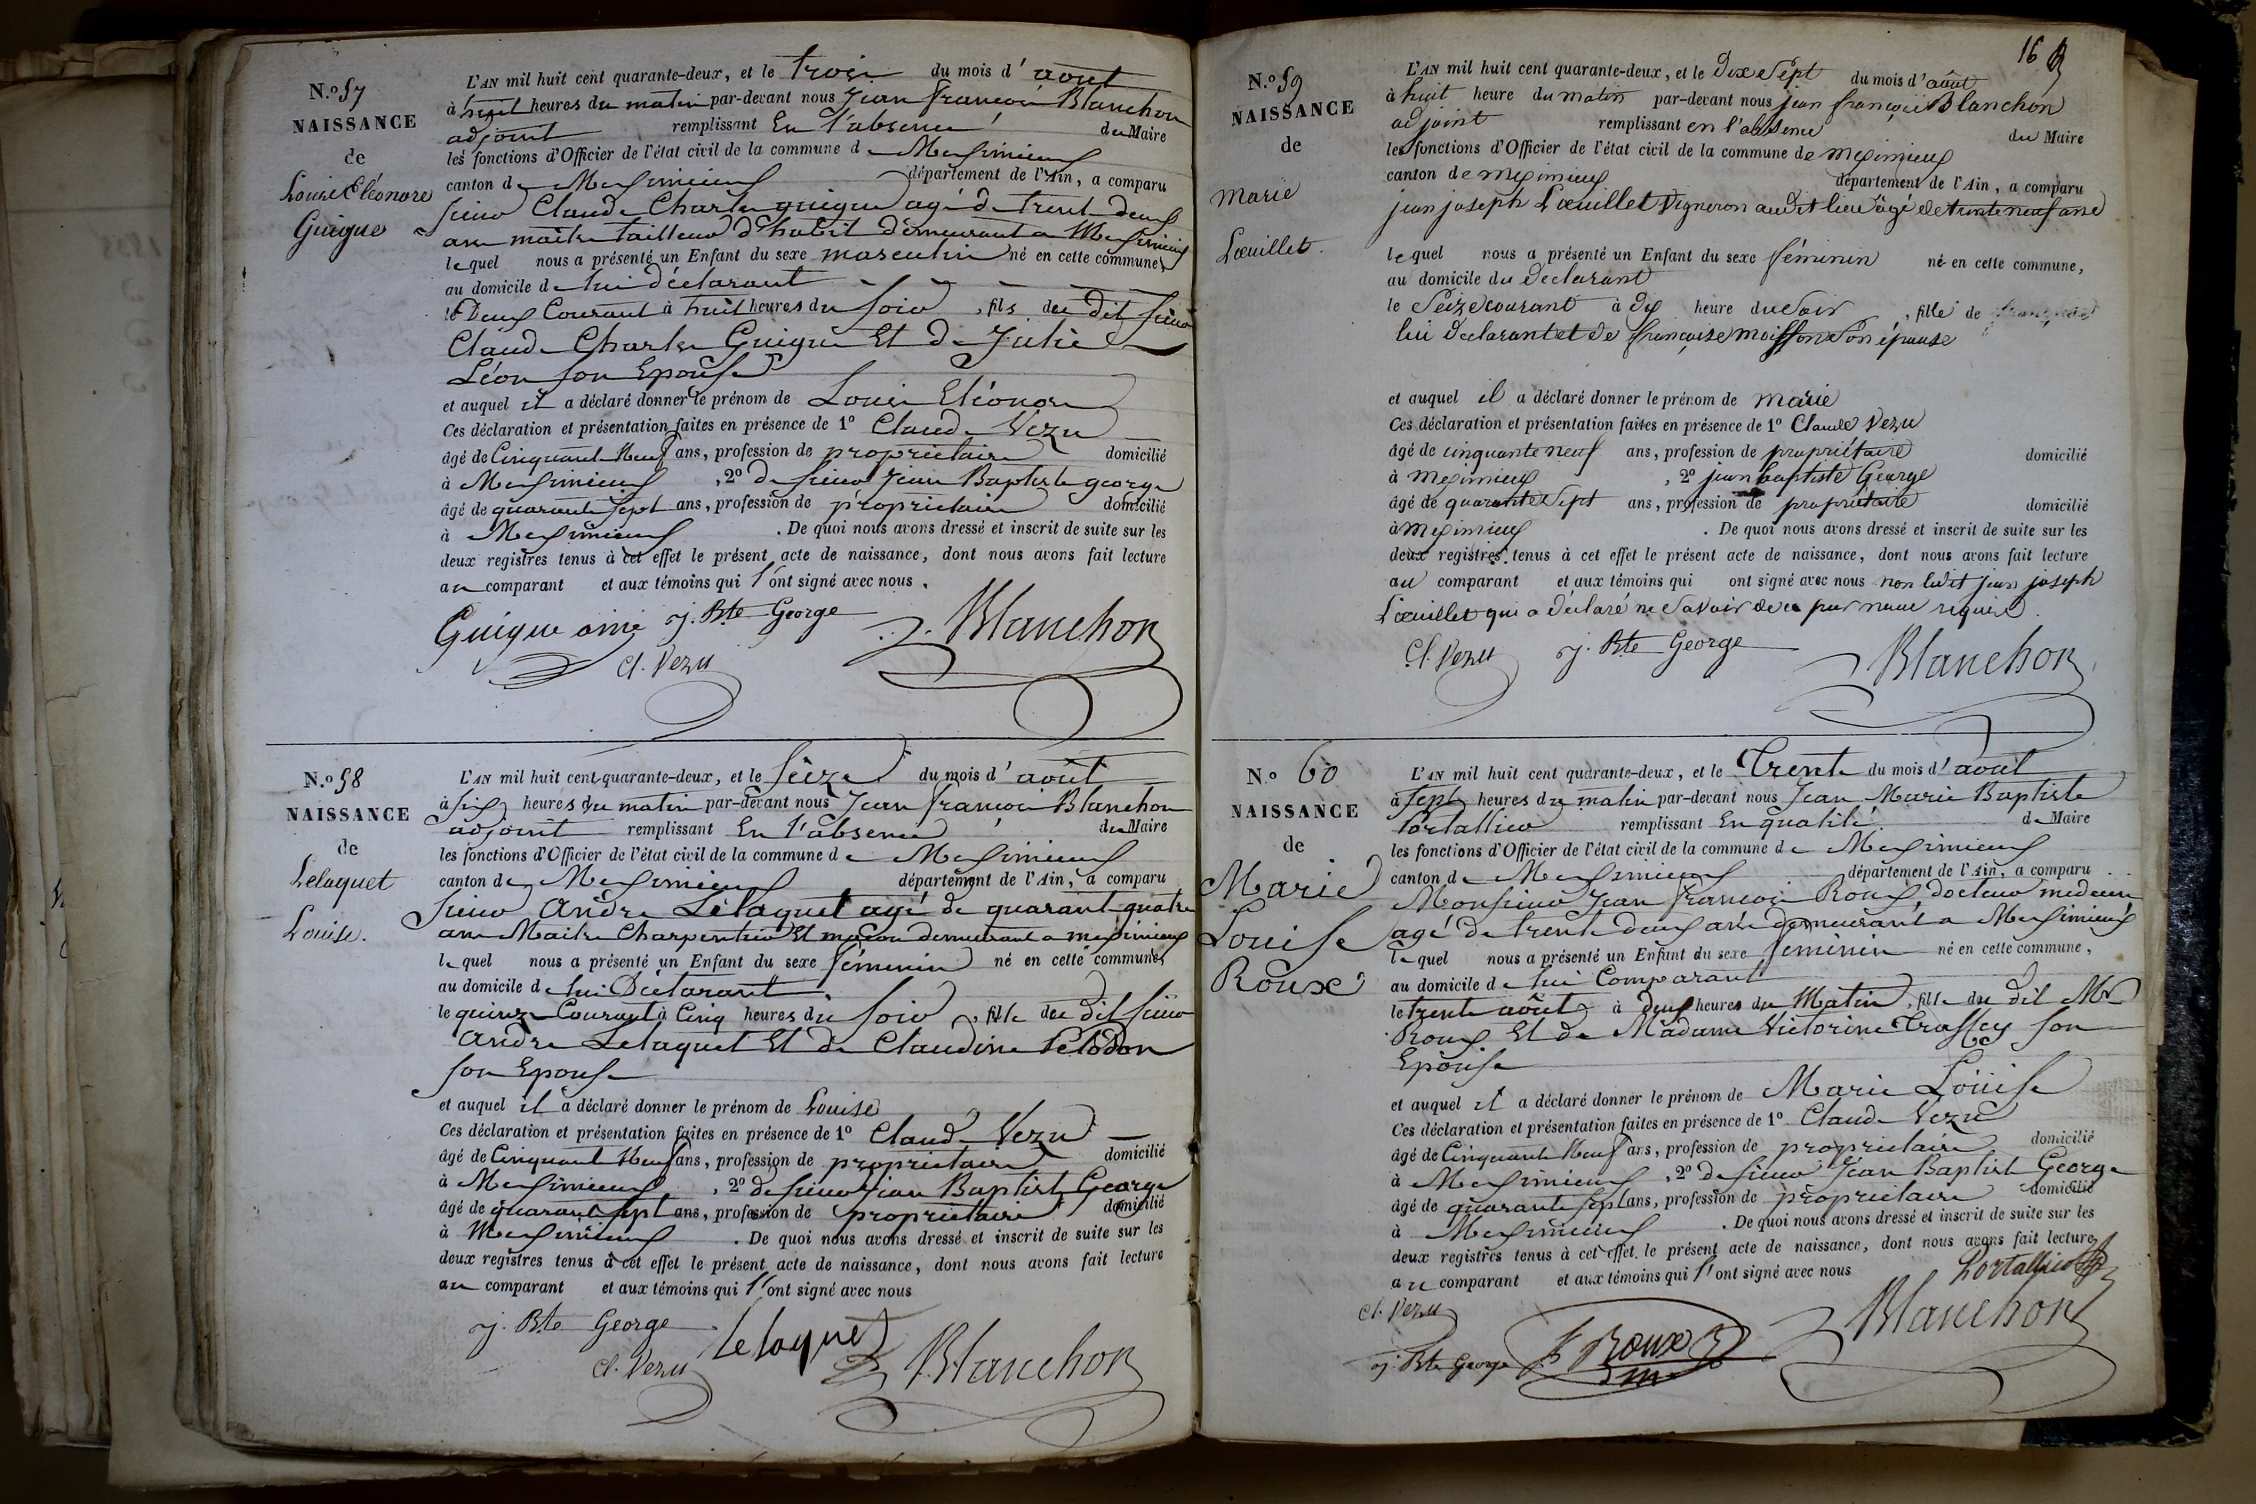 N.º 57
NAISSANCE
de
Louis Eléonore
Guigue
L'AN mil huit cent quarante-deux, et le trois du mois d'août
à huit heures du matin par-devant nous Jean françois Blanchon
adjoint remplissant En l'absence du Maire
les fonctions d'Officier de l'état civil de la commune de Meximieux
canton de Meximieux département de l'Ain, a comparu
sieur Claude Charles guigue agé de trente deux
ans maître tailleur d'habit demeurant a Meximieux
lequel nous a présenté un Enfant du sexe masculin né en cette commune,
au domicile de lui déclarant
le Deux Courant à huit heures du soir, fils du dit sieur
Claude Charles Guigue Et de Julie
Léon son Epouse
et auquel il a déclaré donner le prénom de Louis Eléonore
Ces déclaration et présentation faites en présence de 1º Claude Vezu
âgé de Cinquante Neuf ans, profession de propriétaire domicilié
à Meximieux, 2º de sieur Jean Baptiste george
âgé de quarante sept ans, profession de propriétaire domicilié
à Meximieux. De quoi nous avons dressé et inscrit de suite sur les
deux registres tenus à cet effet le présent acte de naissance, dont nous avons fait lecture
au comparant et aux témoins qui l'ont signé avec nous.
Guigue ainé j. Bte George Blanchon
Cl. Vezu
N.º 58
NAISSANCE
de
Lelaquet
Louise.
L'AN mil huit cent quarante-deux, et le seize du mois d'août
à six heures du matin par-devant nous Jean françois Blanchon
adjoint remplissant En l'absence du Maire
les fonctions d'Officier de l'état civil de la commune de Meximieux
canton de Meximieux département de l'Ain, a comparu
sieur André Lelaquet agé de quarante quatre
ans Maitre Charpentier Et maçon demeurant a meximieux
lequel nous a présenté un Enfant du sexe féminin né en cette commune,
au domicile de lui Déclarant
le quinze Courant à Cinq heures du soir, fille du dit sieur
André Lelaquet Et de Claudine
son Epouse
et auquel il a déclaré donner le prénom de Louise
Ces déclaration et présentation faites en présence de 1º Claude Vezu
âgé de Cinquante Neuf ans, profession de propriétaire domicilié
à Meximieux, 2º de sieur Jean Baptiste George
âgé de quarante sept ans, profession de propriétaire domicilié
à Meximieux. De quoi nous avons dressé et inscrit de suite sur les
deux registres tenus à cet effet le présent acte de naissance, dont nous avons fait lecture
au comparant et aux témoins qui l'ont signé avec nous
j. Bte George Lelaquet Blanchon
Cl. Vezu
16
N.º 59
NAISSANCE
de
Marie
Lœuillet.
L'AN mil huit cent quarante-deux, et le Dix Sept du mois d'août
à huit heure du matin par-devant nous jean françois Blanchon
adjoint remplissant en l'absence du Maire
les fonctions d'Officier de l'état civil de la commune de meximieux
canton de meximieux département de l'Ain, a comparu
jean joseph Lœuillet Vigneron audit lieu âgé de trente neuf ans
lequel nous a présenté un Enfant du sexe féminin né en cette commune,
au domicile du Declarant
le Seize courant à dix heure du Soir, fille de
lui Declarant et de françoise moiffon Son épouse
et auquel il a déclaré donner le prénom de marie
Ces déclaration et présentation faites en présence de 1º Claude Vezu
âgé de cinquante neuf ans, profession de propriétaire domicilié
à meximieux, 2º jean baptiste George
âgé de quarante Sept ans, profession de propriétaire domicilié
à meximieux. De quoi nous avons dressé et inscrit de suite sur les
deux registres tenus à cet effet le présent acte de naissance, dont nous avons fait lecture
au comparant et aux témoins qui ont signé avec nous non ledit jean joseph
Lœuillet qui a déclaré ne Savoir de ce par nous requis.
Cl. Vezu j. Bte George Blanchon
N.º 60
NAISSANCE
de
Marie
Louise
Roux
L'AN mil huit cent quarante-deux, et le Trente du mois d'août
à sept heures du matin par-devant nous Jean Marie Baptiste
Portallier remplissant En qualité de Maire
les fonctions d'Officier de l'état civil de la commune de Meximieux
canton de Meximieux département de l'Ain, a comparu
Monsieur Jean françois Roux, docteur médecin
agé de trente deux ans demeurant a Meximieux
lequel nous a présenté un Enfant du sexe féminin né en cette commune,
au domicile de lui Comparant
le trente août à deux heures du Matin, fille du dit Mr
Roux Et de Madame Victorine Traffey son
Epouse
et auquel il a déclaré donner le prénom de Marie Louise
Ces déclaration et présentation faites en présence de 1º Claude Vezu
âgé de Cinquante Neuf ans, profession de propriétaire domicilié
à Meximieux, 2º de sieur Jean Baptiste George
âgé de quarante sept ans, profession de propriétaire domicilié
à Meximieux. De quoi nous avons dressé et inscrit de suite sur les
deux registres tenus à cet effet le présent acte de naissance, dont nous avons fait lecture
au comparant et aux témoins qui l'ont signé avec nous Portallier
Cl. Vezu Blanchon
j. Bte George Roux